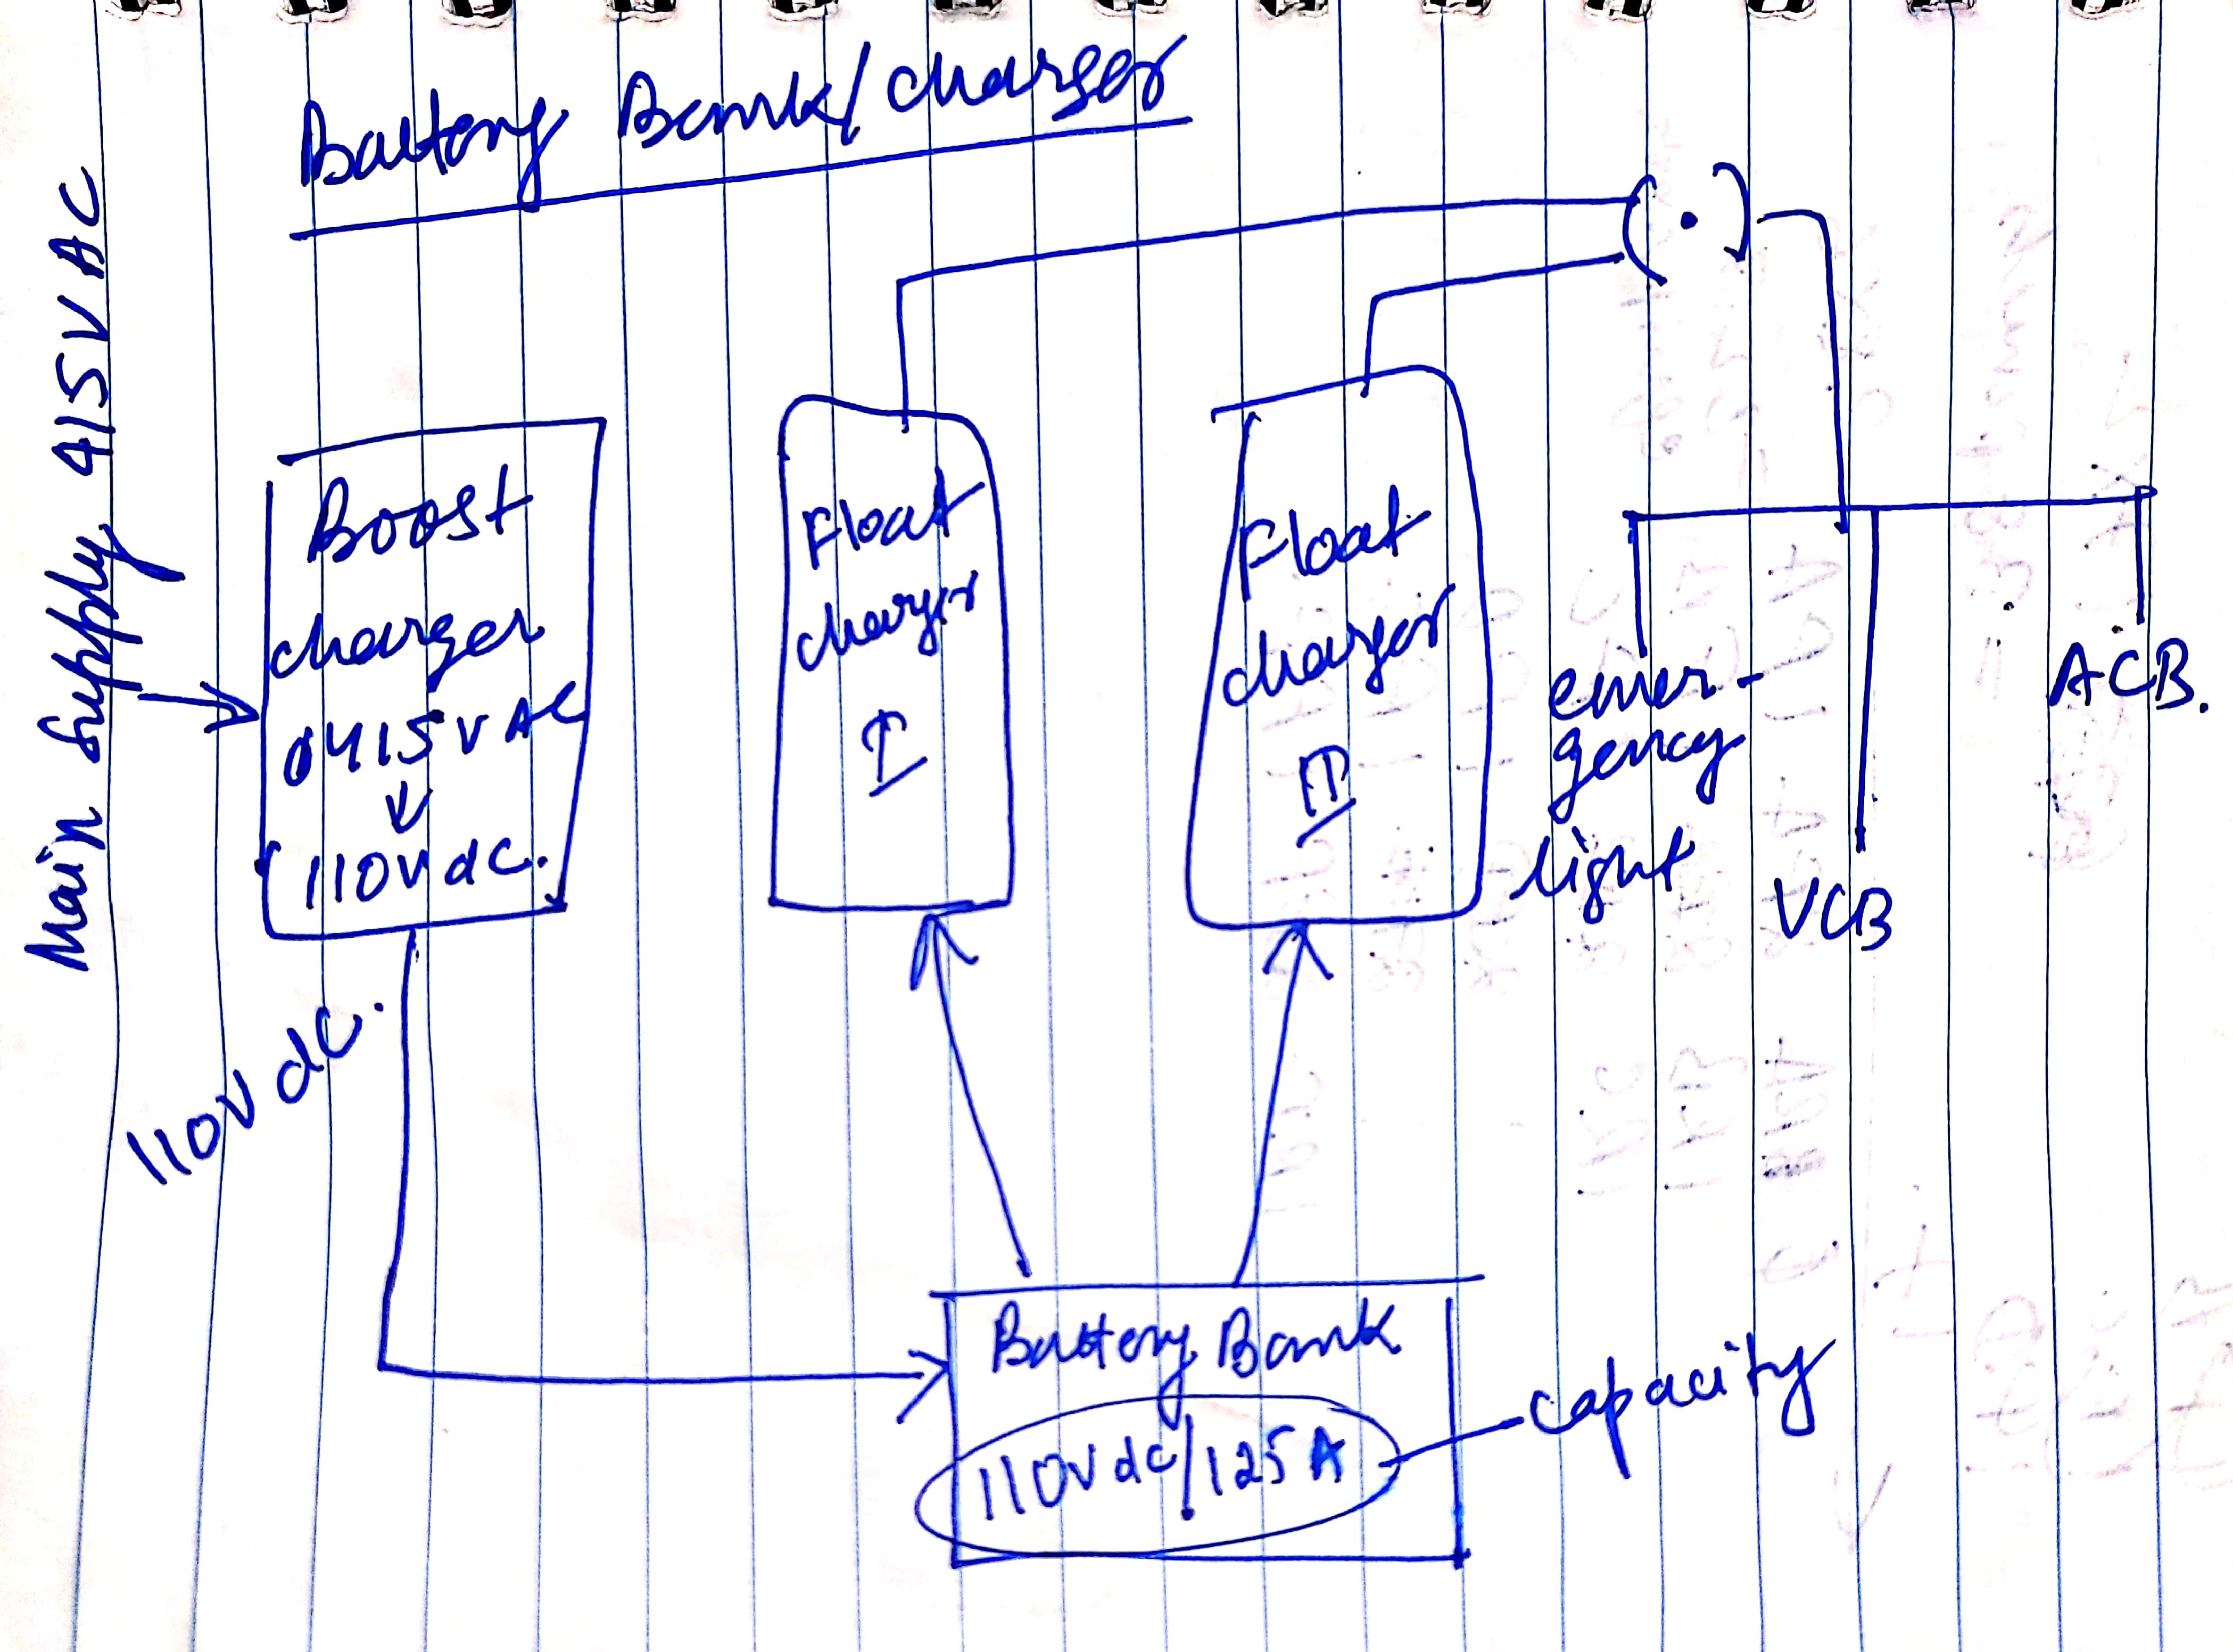 Battery Bank/charger
Main Supply 415V AC
Boost
charger
0415V AC
110V dc.
Float
charger
I
Float
charger
II
emer-
gency
light
VCB
ACB.
110V dc.
Battery Bank
110V dc/125A
capacity